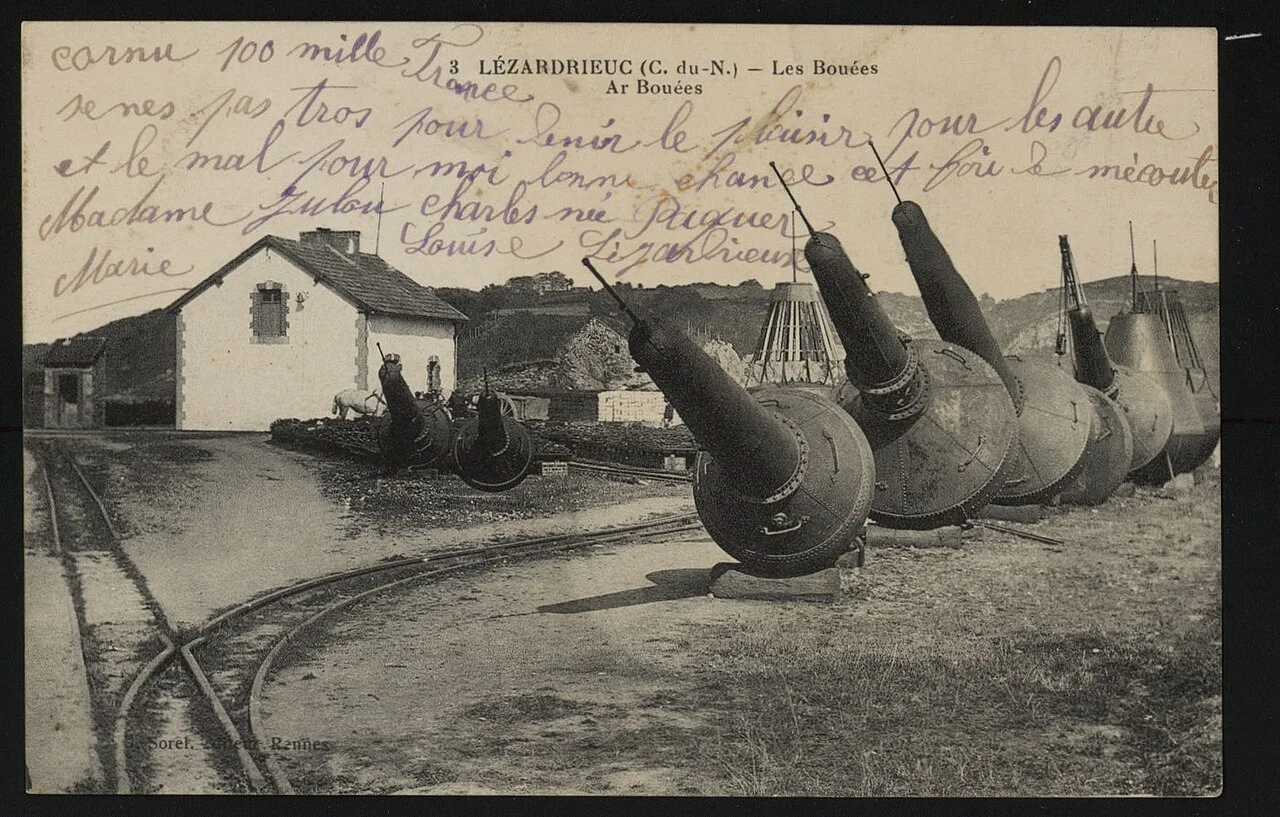 cornu 100 mille France
3 LÉZARDRIEUC (C. du-N.) — Les Bouées
Ar Bouées
se nes pas tros pour lenir le plaisir pour les autre
et le mal pour moi bonne chance cet foi le mécouter
Madame Zulou Charles née Paquer
Marie Louise Lézardrieux
Sorel, Rennes